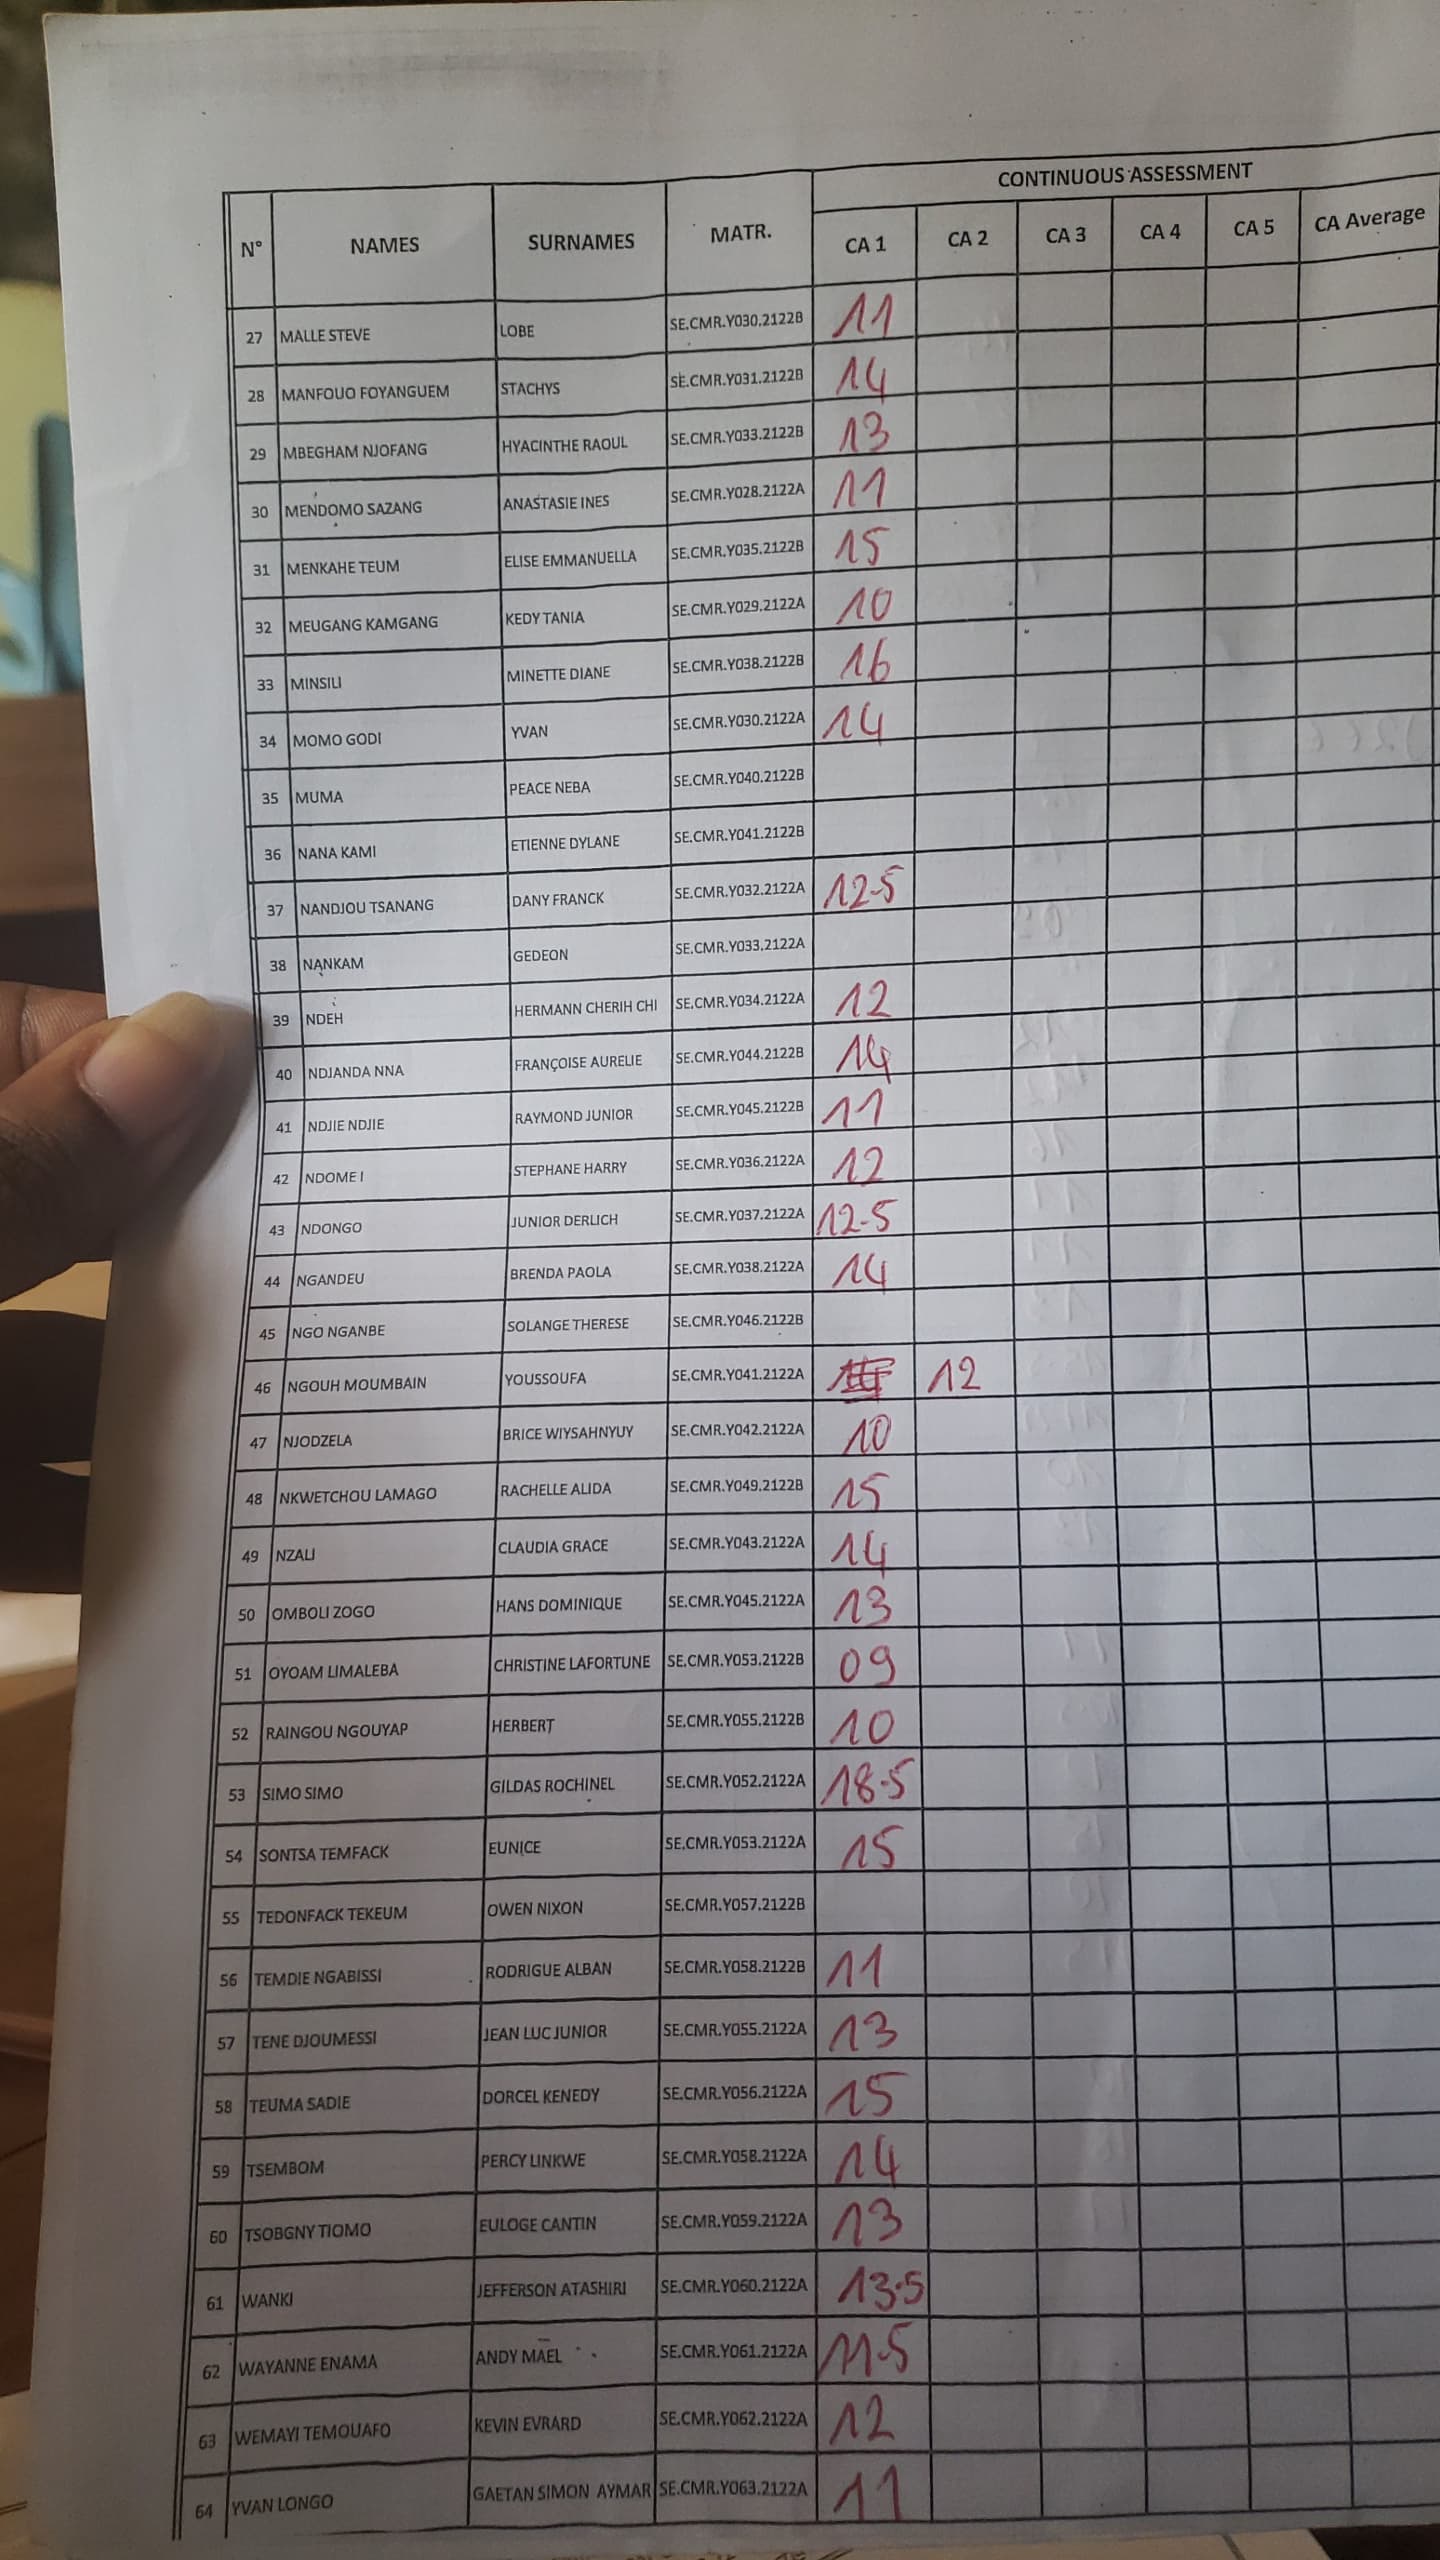 CONTINUOUS ASSESSMENT
N° NAMES SURNAMES MATR. CA 1 CA 2 CA 3 CA 4 CA 5 CA Average
27 MALLE STEVE LOBE SE.CMR.Y030.2122B 11
28 MANFOUO FOYANGUEM STACHYS SE.CMR.Y031.2122B 14
29 MBEGHAM NJOFANG HYACINTHE RAOUL SE.CMR.Y033.2122B 13
30 MENDOMO SAZANG ANASTASIE INES SE.CMR.Y028.2122A 11
31 MENKAHE TEUM ELISE EMMANUELLA SE.CMR.Y035.2122B 15
32 MEUGANG KAMGANG KEDY TANIA SE.CMR.Y029.2122A 10
33 MINSILI MINETTE DIANE SE.CMR.Y038.2122B 16
34 MOMO GODI YVAN SE.CMR.Y030.2122A 14
35 MUMA PEACE NEBA SE.CMR.Y040.2122B
36 NANA KAMI ETIENNE DYLANE SE.CMR.Y041.2122B
37 NANDJOU TSANANG DANY FRANCK SE.CMR.Y032.2122A 12.5
38 NANKAM GEDEON SE.CMR.Y033.2122A
39 NDEH HERMANN CHERIH CHI SE.CMR.Y034.2122A 12
40 NDJANDA NNA FRANÇOISE AURELIE SE.CMR.Y044.2122B 14
41 NDJIE NDJIE RAYMOND JUNIOR SE.CMR.Y045.2122B 11
42 NDOME I STEPHANE HARRY SE.CMR.Y036.2122A 12
43 NDONGO JUNIOR DERLICH SE.CMR.Y037.2122A 12.5
44 NGANDEU BRENDA PAOLA SE.CMR.Y038.2122A 14
45 NGO NGANBE SOLANGE THERESE SE.CMR.Y046.2122B
46 NGOUH MOUMBAIN YOUSSOUFA SE.CMR.Y041.2122A 12
47 NJODZELA BRICE WIYSAHNYUY SE.CMR.Y042.2122A 10
48 NKWETCHOU LAMAGO RACHELLE ALIDA SE.CMR.Y049.2122B 15
49 NZALI CLAUDIA GRACE SE.CMR.Y043.2122A 14
50 OMBOLI ZOGO HANS DOMINIQUE SE.CMR.Y045.2122A 13
51 OYOAM LIMALEBA CHRISTINE LAFORTUNE SE.CMR.Y053.2122B 09
52 RAINGOU NGOUYAP HERBERT SE.CMR.Y055.2122B 10
53 SIMO SIMO GILDAS ROCHINEL SE.CMR.Y052.2122A 18.5
54 SONTSA TEMFACK EUNICE SE.CMR.Y053.2122A 15
55 TEDONFACK TEKEUM OWEN NIXON SE.CMR.Y057.2122B
56 TEMDIE NGABISSI RODRIGUE ALBAN SE.CMR.Y058.2122B 11
57 TENE DJOUMESSI JEAN LUC JUNIOR SE.CMR.Y055.2122A 13
58 TEUMA SADIE DORCEL KENEDY SE.CMR.Y056.2122A 15
59 TSEMBOM PERCY LINKWE SE.CMR.Y058.2122A 14
60 TSOBGNY TIOMO EULOGE CANTIN SE.CMR.Y059.2122A 13
61 WANKI JEFFERSON ATASHIRI SE.CMR.Y060.2122A 13.5
62 WAYANNE ENAMA ANDY MAEL SE.CMR.Y061.2122A 11.5
63 WEMAYI TEMOUAFO KEVIN EVRARD SE.CMR.Y062.2122A 12
64 YVAN LONGO GAETAN SIMON AYMAR SE.CMR.Y063.2122A 11